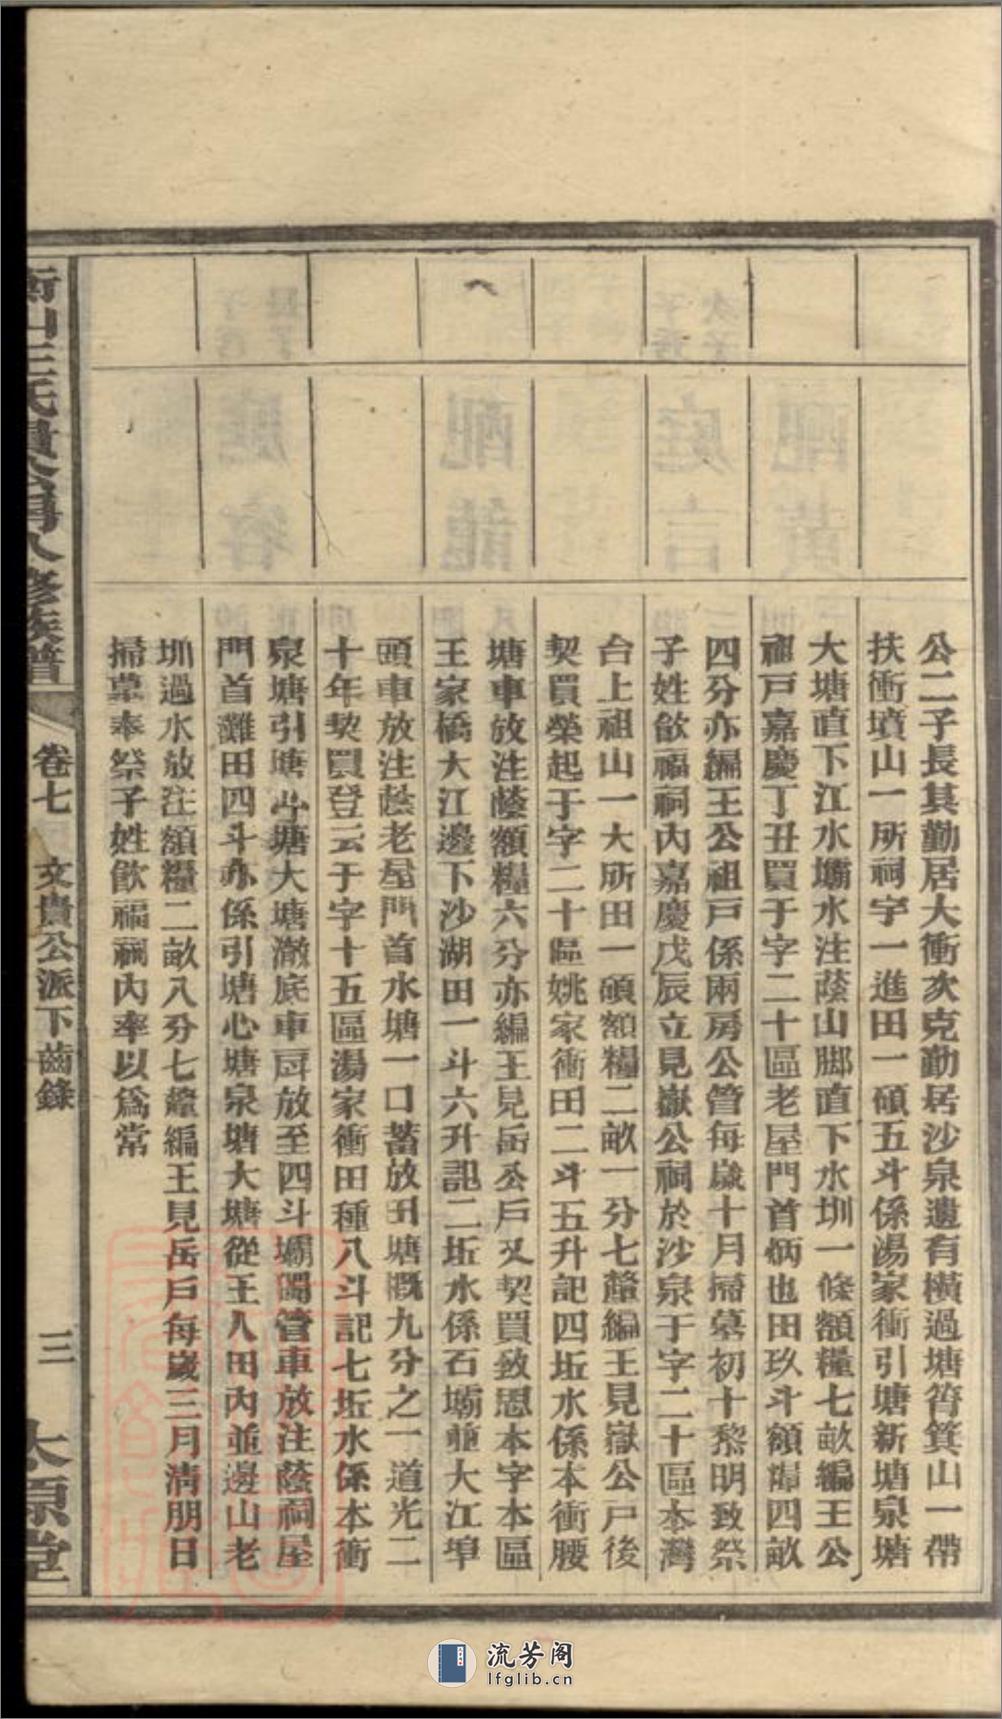 公二子長其勤居大衝次克勤居沙泉遺有橫過塘筲箕山一帶
扶衝墳山一所祠宇一進田一碩五斗係湯家衝引塘新塘泉塘
大塘直下江水壩水注蔭山脚直下水圳一條額糧七畝編王公
祖戶嘉慶丁丑買于字二十區老屋門首炳也田玖斗額糧四畝
四分亦編王公祖戶係兩房公管每歲十月掃墓初十黎明致祭
子姓飲福祠內嘉慶戊辰立見嶽公祠於沙泉于字二十區本灣
台上祖山一大所田一碩額糧二畝一分七釐編王見嶽公戶後
契買榮起于字二十區姚家衝田二斗五升記四坵水係本衝腰
塘車放注蔭額糧六分亦編王見岳公戶又契買致恩本字本區
王家橋大江邊下沙湖田一斗六升記二坵水係石壩車大江埠
頭車放注蔭老屋門首水塘一口蓄放田塘概九分之一道光二
十年契買登云于字十五區湯家衝田種八斗記七坵水係本衝
泉塘引塘心塘大塘澈底車戽放至四斗壩獨管車放注蔭祠屋
門首灘田四斗亦係引塘心塘泉塘大塘從王人田內並邊山老
圳過水放注額糧二畝八分七釐編王見岳戶每歲三月清朋日
掃墓奉祭子姓飲福祠內率以爲常
衡山王氏貴公房八修族譜
卷七
文貴公派下齒錄
三
太原堂
流芳阁
lfglib.cn